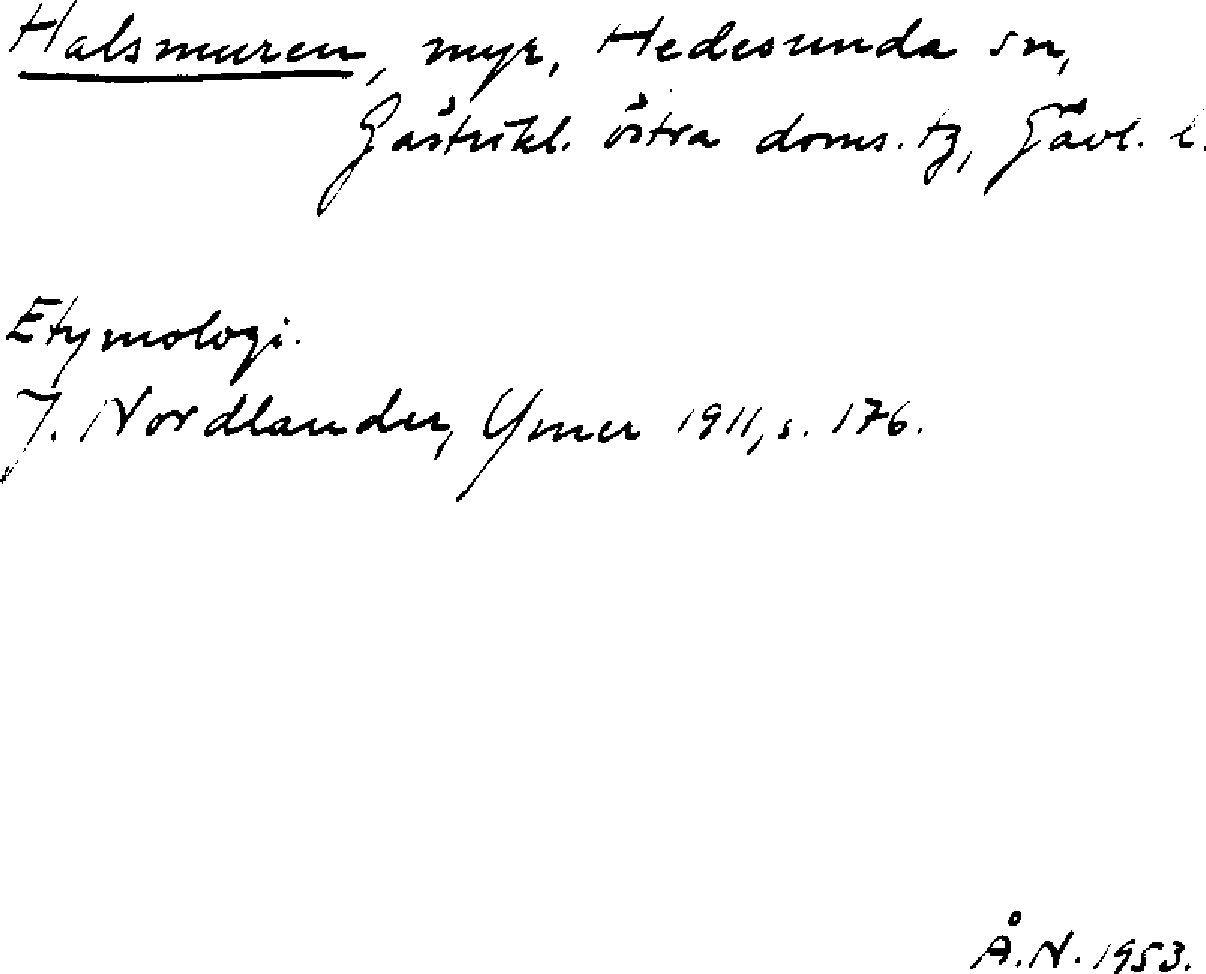 Halsmuren, myr, Hedesunda sn,
Gästrikl. östra doms. tg, Gävl. l.
Etymologi.
J. Nordlander, Ymer 1911, s. 176.
Å.N. 1953.